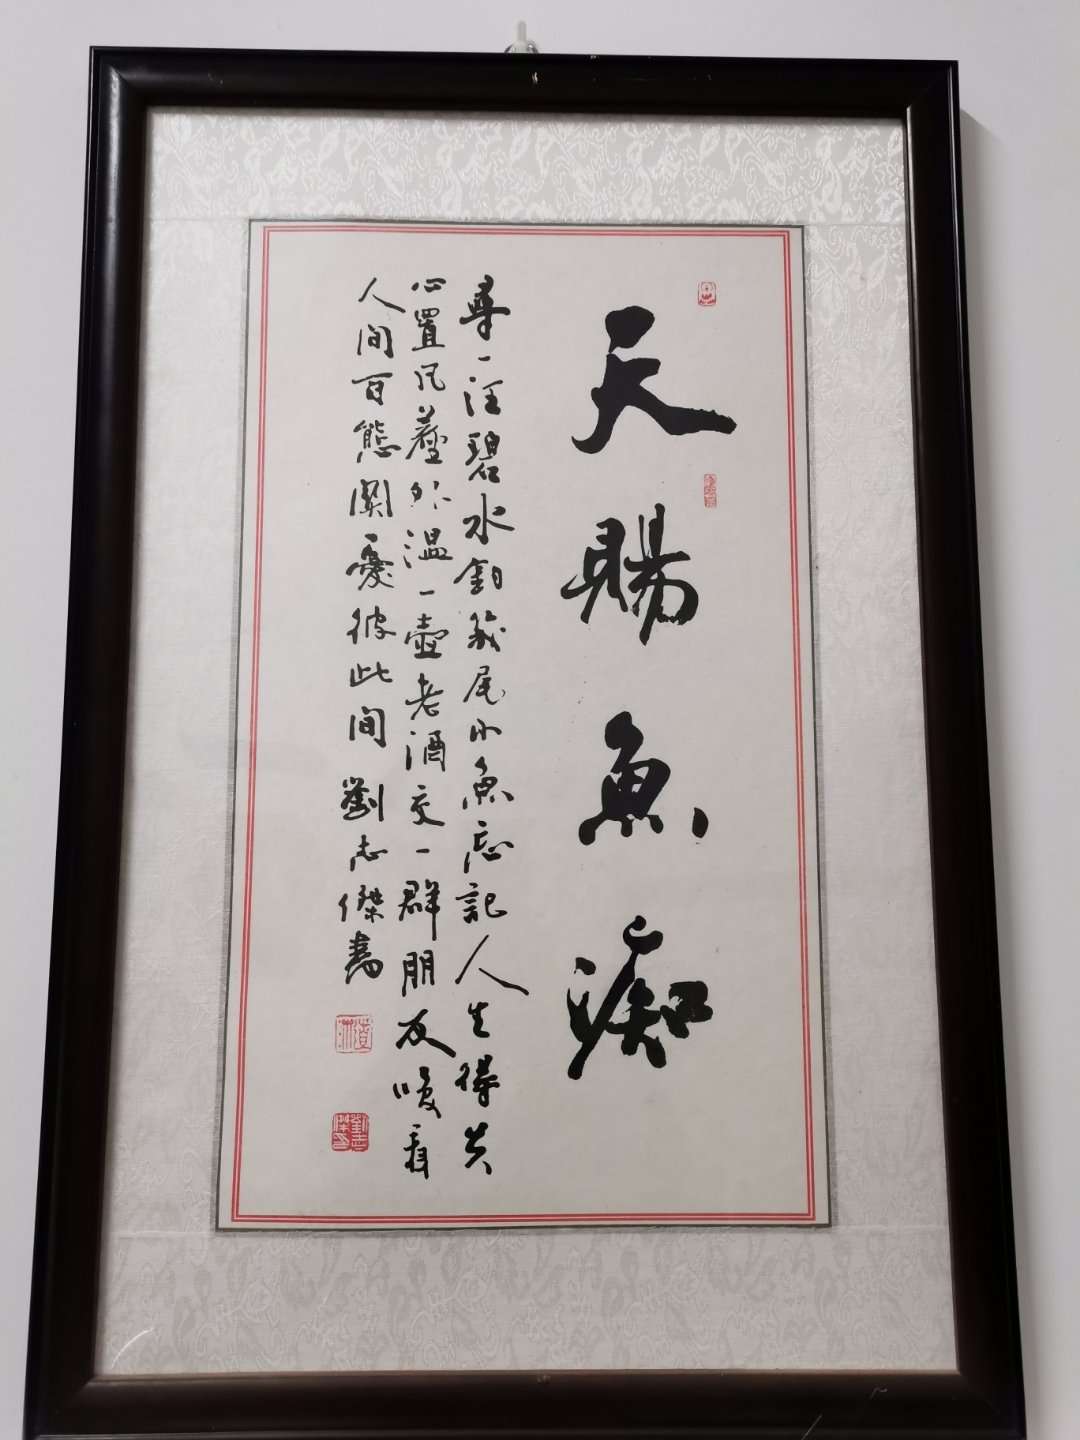 天賜魚痴
尋一汪碧水釣幾尾小魚忘記人生得失
心置凡塵外溫一壺老酒交一群朋友暖看
人间百態關愛彼此间 劉志傑書
劉志傑印